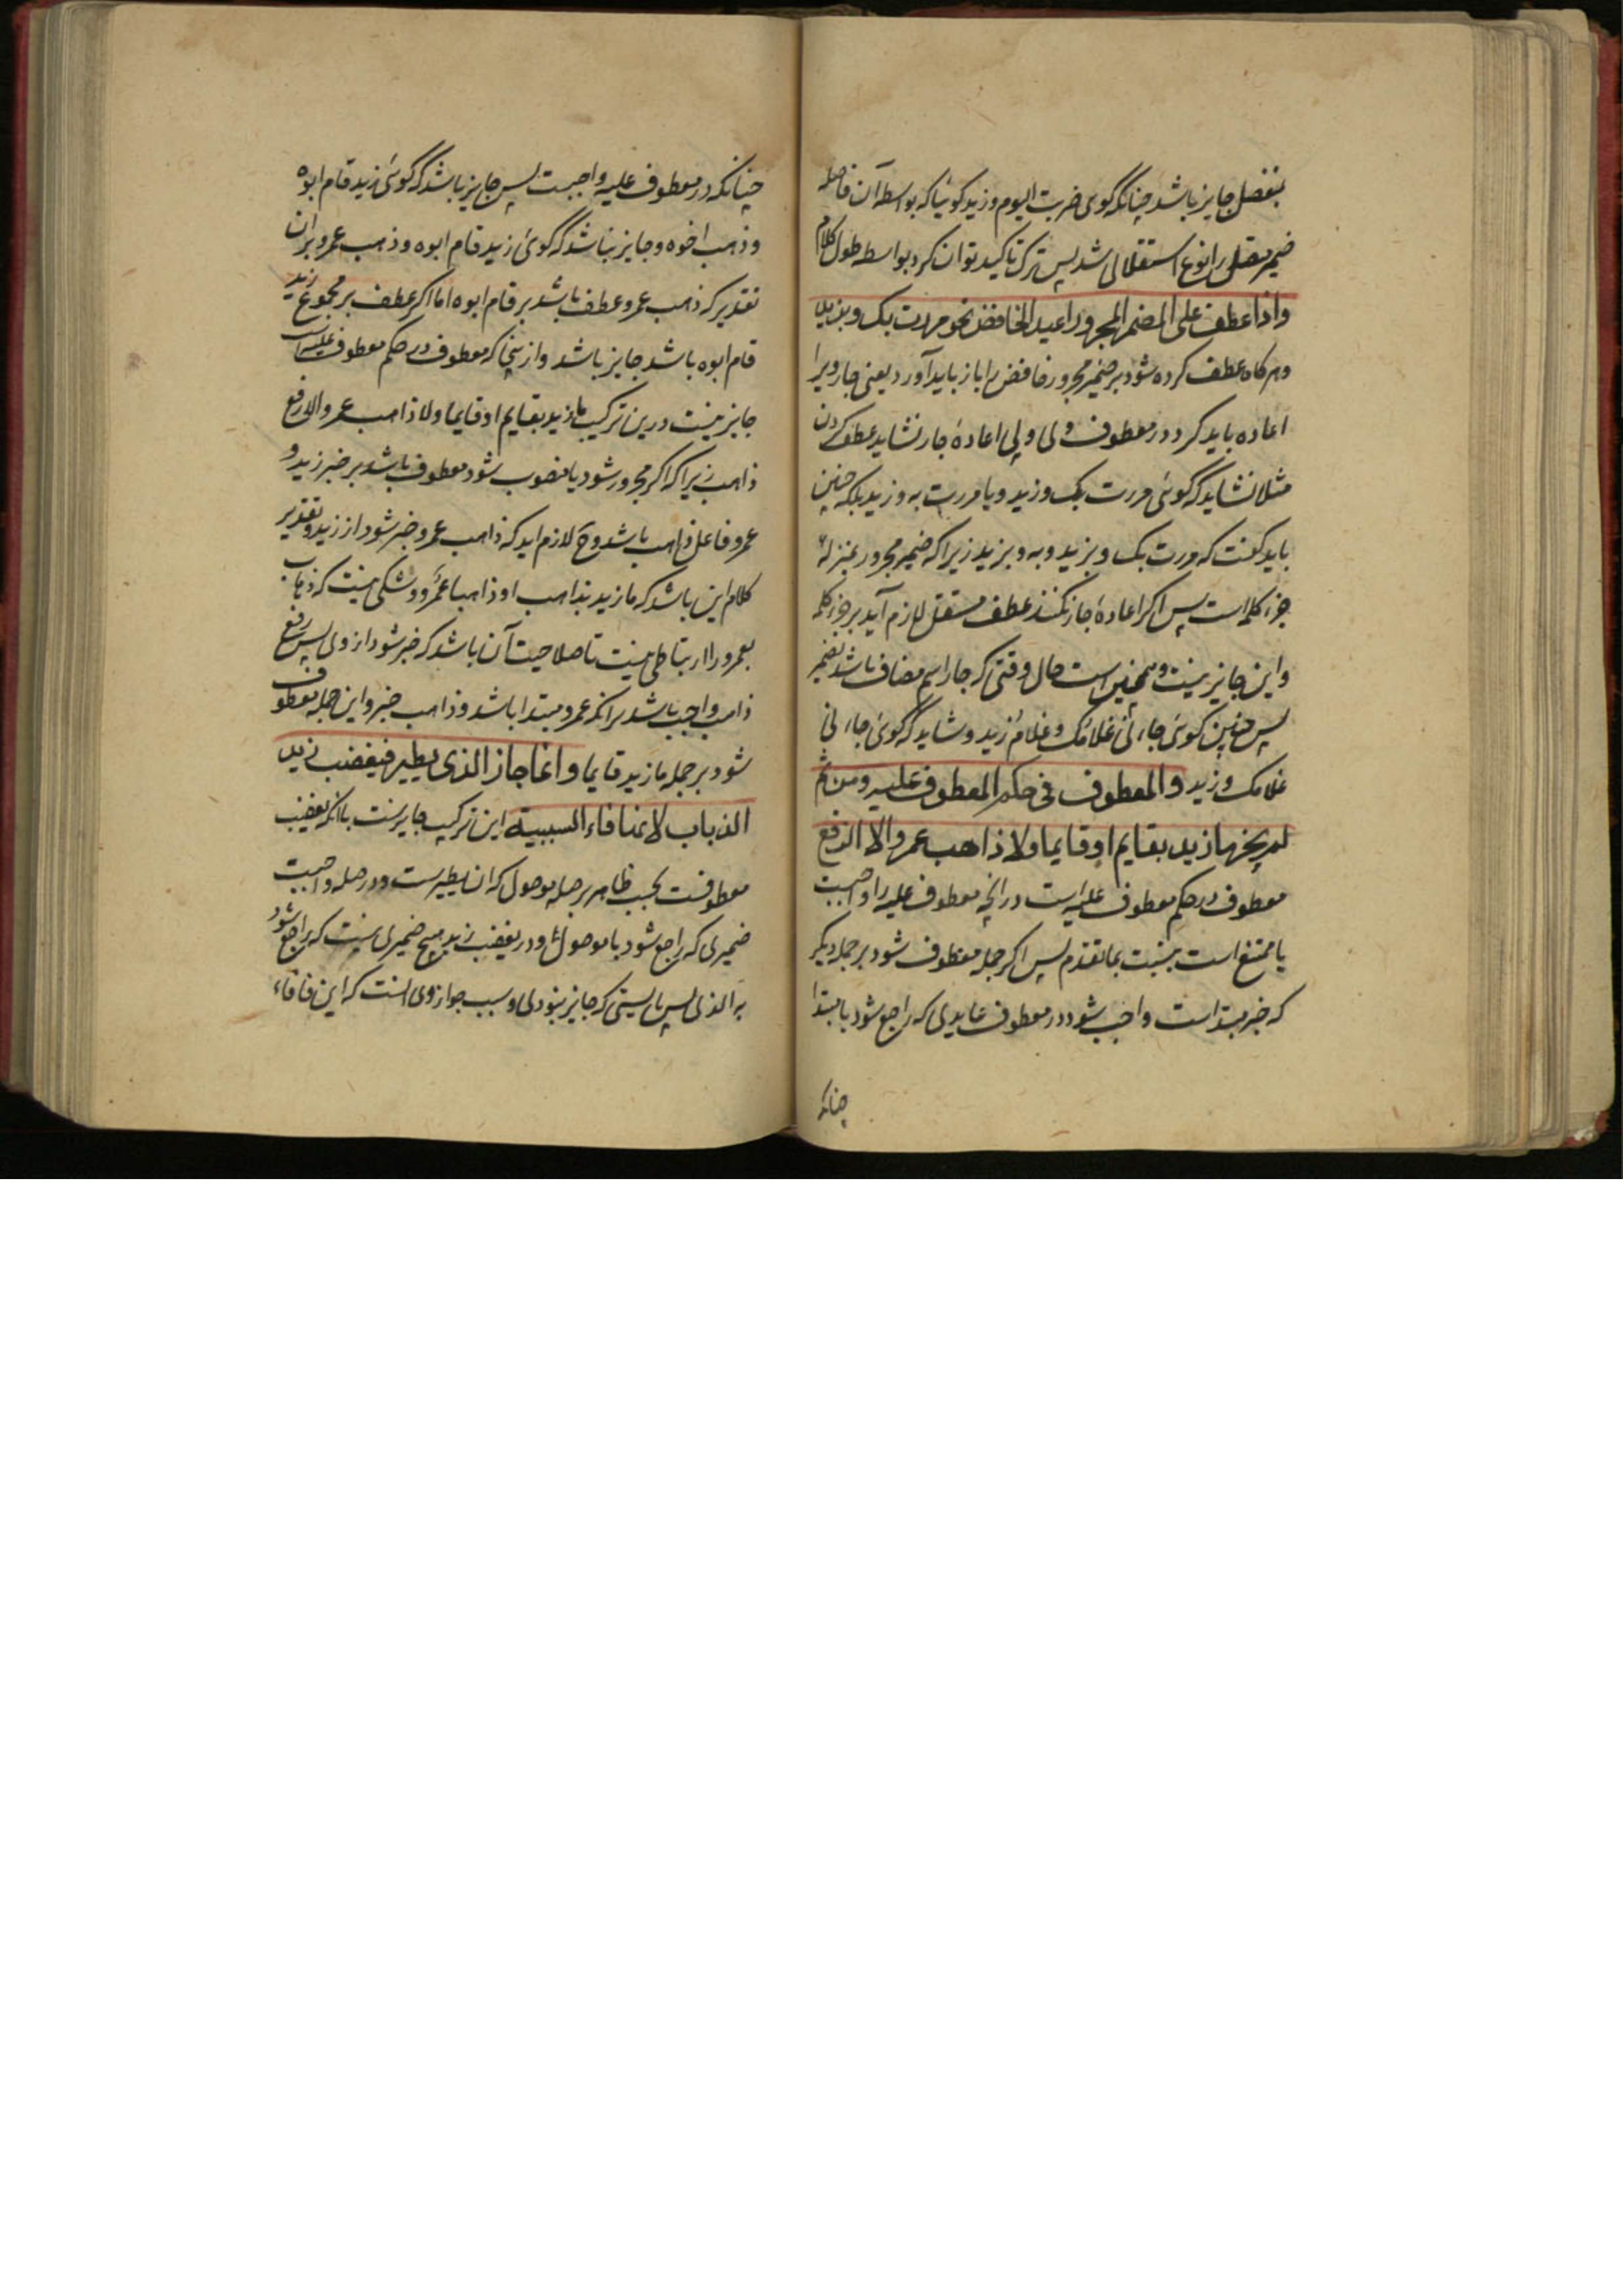 بفصل جایز باشد چنانکه گوی ضربت الیوم وزید کوئیا که بواسطه آن فاصله
ضمیر متصل را نوع استقلالی شد پس ترک تاکید توان کرد بواسطه طول کلام
واذا عطف علی المضمر المجرور اعید الخافض نحو مررت بک وبزید
وهر کاه عطف کرده شود بر ضمیر مجرور خافض را باز باید آورد یعنی جار ویرا
اعاده باید کرد در معطوف ولی اعادۀ جار نشاید عطف کردن
مثلا نشاید که گوئی مررت بک وزید ویا مررت به وزید بلکه چنین
باید کفت که مررت بک وبزید وبه وبزید زیرا که ضمیر مجرور بمنزلۀ
جزء کلمه است پس اکر اعادۀ جار نکنند عطف مستقل لازم آید بر جزء کلمه
واین جایز نیست وهمچنین است حال وقتی که جار اسم مضاف باشد بضمیر
پس چنین کوئی جاءنی غلامک وغلام زید ونشاید که گوئی جاءنی
غلامک وزید والمعطوف فی حکم المعطوف علیه ومن ثم
لم یجز ما زید بقایم او قایما ولا ذاهب عمرو الا الرفع
معطوف در حکم معطوف علیه است در انچه معطوف علیه را واجبست
یا ممتنع است بنسبت بما تقدم پس اکر جمله معطوف شود بر جمله دیکر
که خبر مبتداست واجب شود در معطوف عایدی که راجع شود با مبتدا
چنانکه
چنانکه در معطوف علیه واجبست پس جایز باشد که گوئی زید قام ابوه
وذهب اخوه وجایز نباشد که گوئی زید قام ابوه وذهب عمرو بران
تقدیر که ذهب عمرو عطف باشد بر قام ابوه اما اکر عطف بر مجموع زید
قام ابوه باشد جایز باشد وازینجا که معطوف در حکم معطوف علیه است
جایز نیست درین ترکیب ما زید بقایم او قایما ولا ذاهب عمرو الا رفع
ذاهب زیرا که اکر مجرور شود یا منصوب شود معطوف باشد بر خبر زید و
عمرو فاعل ذاهب باشد وح لازم اید که ذاهب عمرو خبر شود از زید وتقدیر
کلام این باشد که ما زید بذاهب او ذاهبا عمرو وشکی نیست که ذهاب
عمرو را ارتباطی نیست تا صلاحیت آن باشد که خبر شود از وی پس رفع
ذاهب واجب باشد برانکه عمرو مبتدا باشد وذاهب خبر واین جمله معطوف
شود بر جمله ما زید قایما وانما جاز الذی یطیر فیغضب زید
الذباب لانها فاء السببیة این ترکیب جایزست باانکه یغضب
معطوفست بحسب ظاهر بر صله موصول که ان یطیرست ودر صله واجبست
ضمیری که راجع شود با موصول ودر یغضب زید هیچ ضمیری نیست که راجع شود
به الذی پس بایستی که جایز نبودی وسبب جواز وی انست که این فا فاء